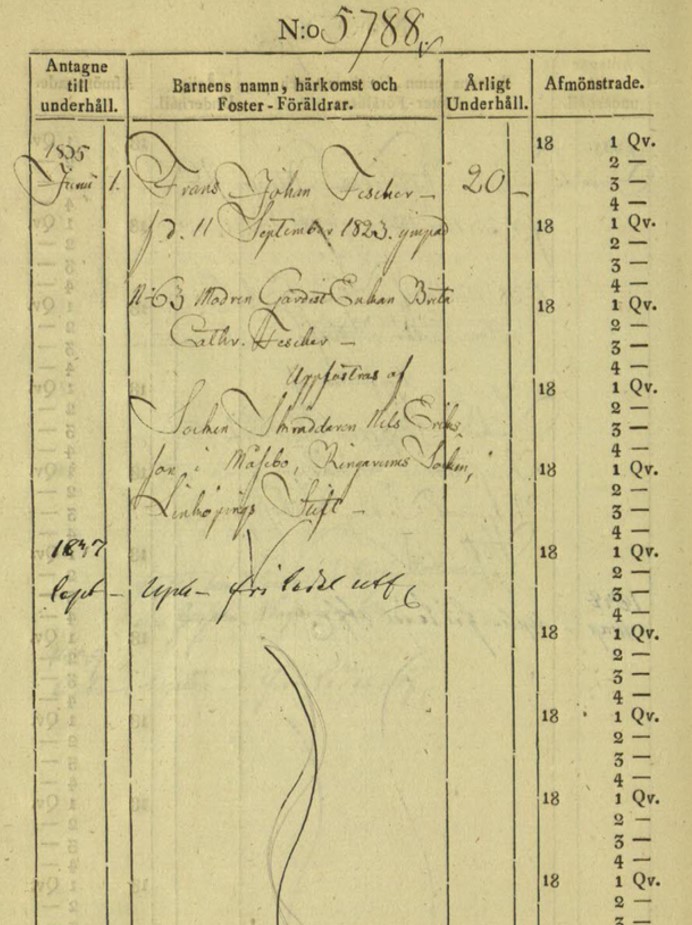 N:o 5788.
Antagne till underhåll.
Barnens namn, härkomst och Foster-Föräldrar.
Årligt Underhåll.
Afmönstrade.
1835
Junii 1. Frans Johan Fischer — 20 —
fd. 11 September 1823. ympad
N:63 Modren Gardist Enkan Brita
Cathr. Fischer —
Uppfostras af
Socken Skräddaren Nils Eriks
son i Måsebo, Ringarums Socken,
Linköpings Stift —
1837
Sept — fri sedel utt
18 1 Qv.
2 —
3 —
4 —
18 1 Qv.
2 —
3 —
4 —
18 1 Qv.
2 —
3 —
4 —
18 1 Qv.
2 —
3 —
4 —
18 1 Qv.
2 —
3 —
4 —
18 1 Qv.
2 —
3 —
4 —
18 1 Qv.
2 —
3 —
4 —
18 1 Qv.
2 —
3 —
4 —
18 1 Qv.
2 —
3 —
4 —
18 1 Qv.
2 —
3 —